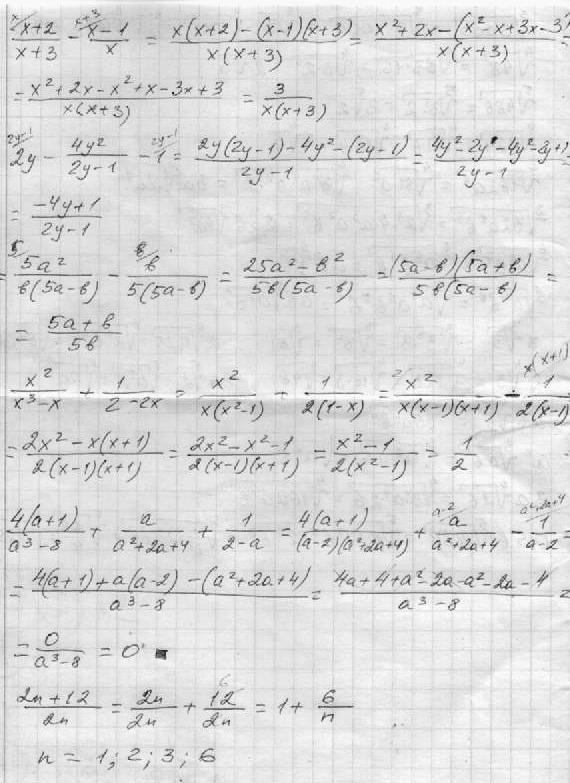 x/ (x+2)/(x+3) - x+3/ (x-1)/x = (x(x+2)-(x-1)(x+3))/(x(x+3)) = (x²+2x-(x²-x+3x-3))/(x(x+3)) =
= (x²+2x-x²+x-3x+3)/(x(x+3)) = 3/(x(x+3))
2y-1/ 2y - 4y²/(2y-1) - 2y-1/ 1 = (2y(2y-1)-4y²-(2y-1))/(2y-1) = (4y²-2y-4y²-2y+1)/(2y-1) =
= (-4y+1)/(2y-1)
= 5/ 5a²/(в(5a-в)) - в/ в/(5(5a-в)) = (25a²-в²)/(5в(5a-в)) = ((5a-в)(5a+в))/(5в(5a-в)) =
= (5a+в)/(5в)
x²/(x³-x) + 1/(2-2x) = x²/(x(x²-1)) + 1/(2(1-x)) = 2/ x²/(x(x-1)(x+1)) - x(x+1)/ 1/(2(x-1))
= (2x²-x(x+1))/(2(x-1)(x+1)) = (2x²-x²-1)/(2(x-1)(x+1)) = (x²-1)/(2(x²-1)) = 1/2
4(a+1)/(a³-8) + a/(a²+2a+4) + 1/(2-a) = 4(a+1)/((a-2)(a²+2a+4)) + a-2/ a/(a²+2a+4) - a²+2a+4/ 1/(a-2) =
= (4(a+1)+a(a-2)-(a²+2a+4))/(a³-8) = (4a+4+a²-2a-a²-2a-4)/(a³-8) =
= 0/(a³-8) = 0
(2n+12)/(2n) = 2n/2n + 12/2n 6 = 1 + 6/n
n = 1; 2; 3; 6